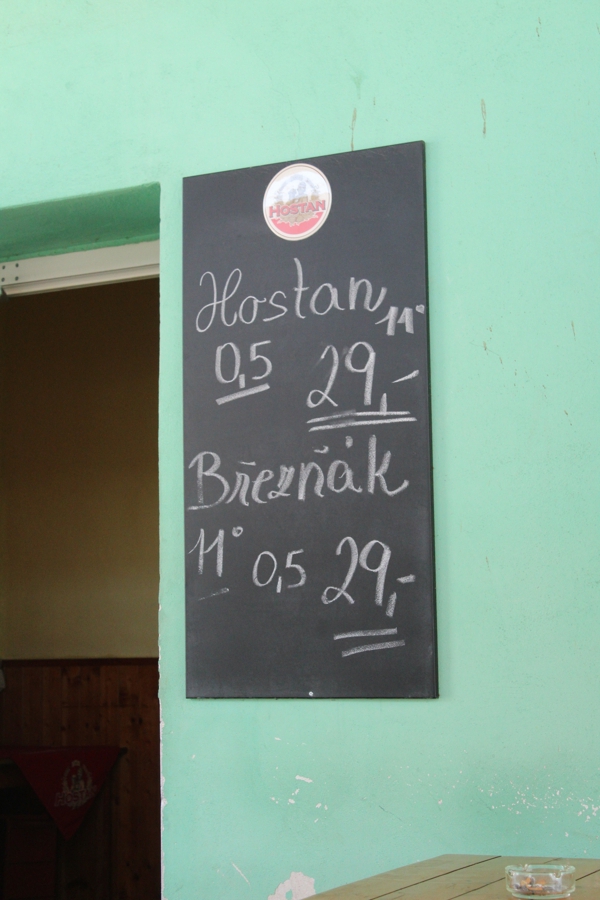 HOSTAN
Hostan 11°
0,5 29,-
Březňák
11° 0,5 29,-